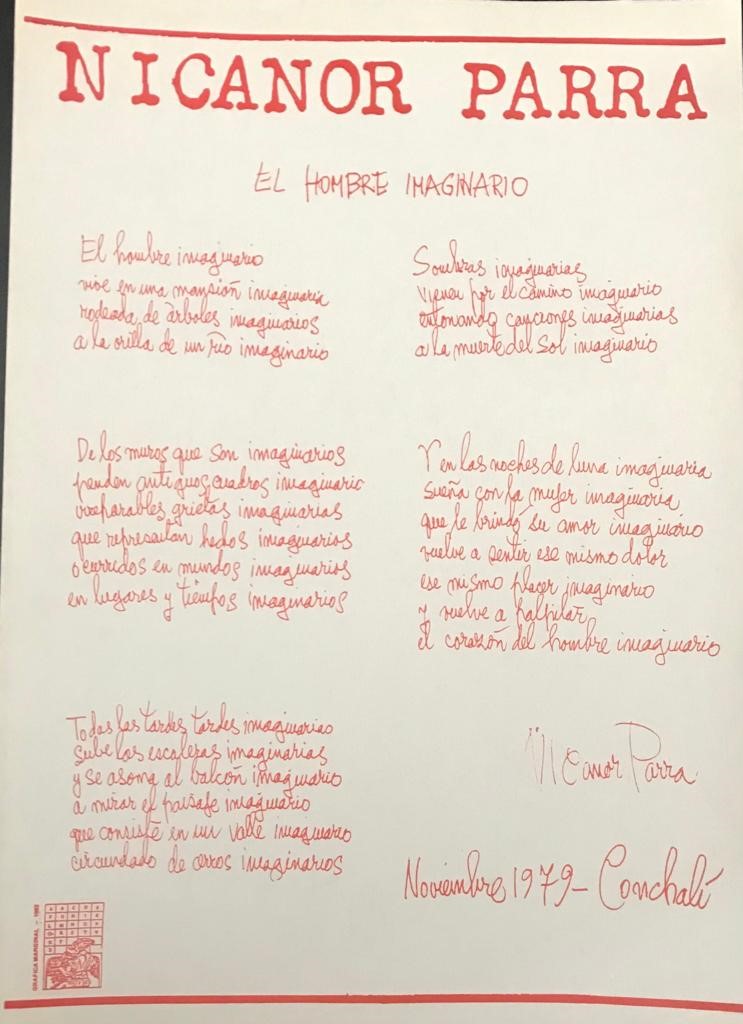 NICANOR PARRA
EL HOMBRE IMAGINARIO
El hombre imaginario
vive en una mansión imaginaria
rodeada de árboles imaginarios
a la orilla de un río imaginario
De los muros que son imaginarios
penden antiguos cuadros imaginario
irreparables grietas imaginarias
que representan hechos imaginarios
ocurridos en mundos imaginarios
en lugares y tiempos imaginarios
Todas las tardes tardes imaginarias
sube las escaleras imaginarias
y se asoma al balcón imaginario
a mirar el paisaje imaginario
que consiste en un valle imaginario
circundado de cerros imaginarios
Sombras imaginarias
vienen por el camino imaginario
entonando canciones imaginarias
a la muerte del sol imaginario
Y en las noches de luna imaginaria
sueña con la mujer imaginaria
que le brindó su amor imaginario
vuelve a sentir ese mismo dolor
ese mismo placer imaginario
y vuelve a palpitar
el corazón del hombre imaginario
Nicanor Parra
Noviembre 1979 - Conchalí
GRAFICA MARGINAL - 1983